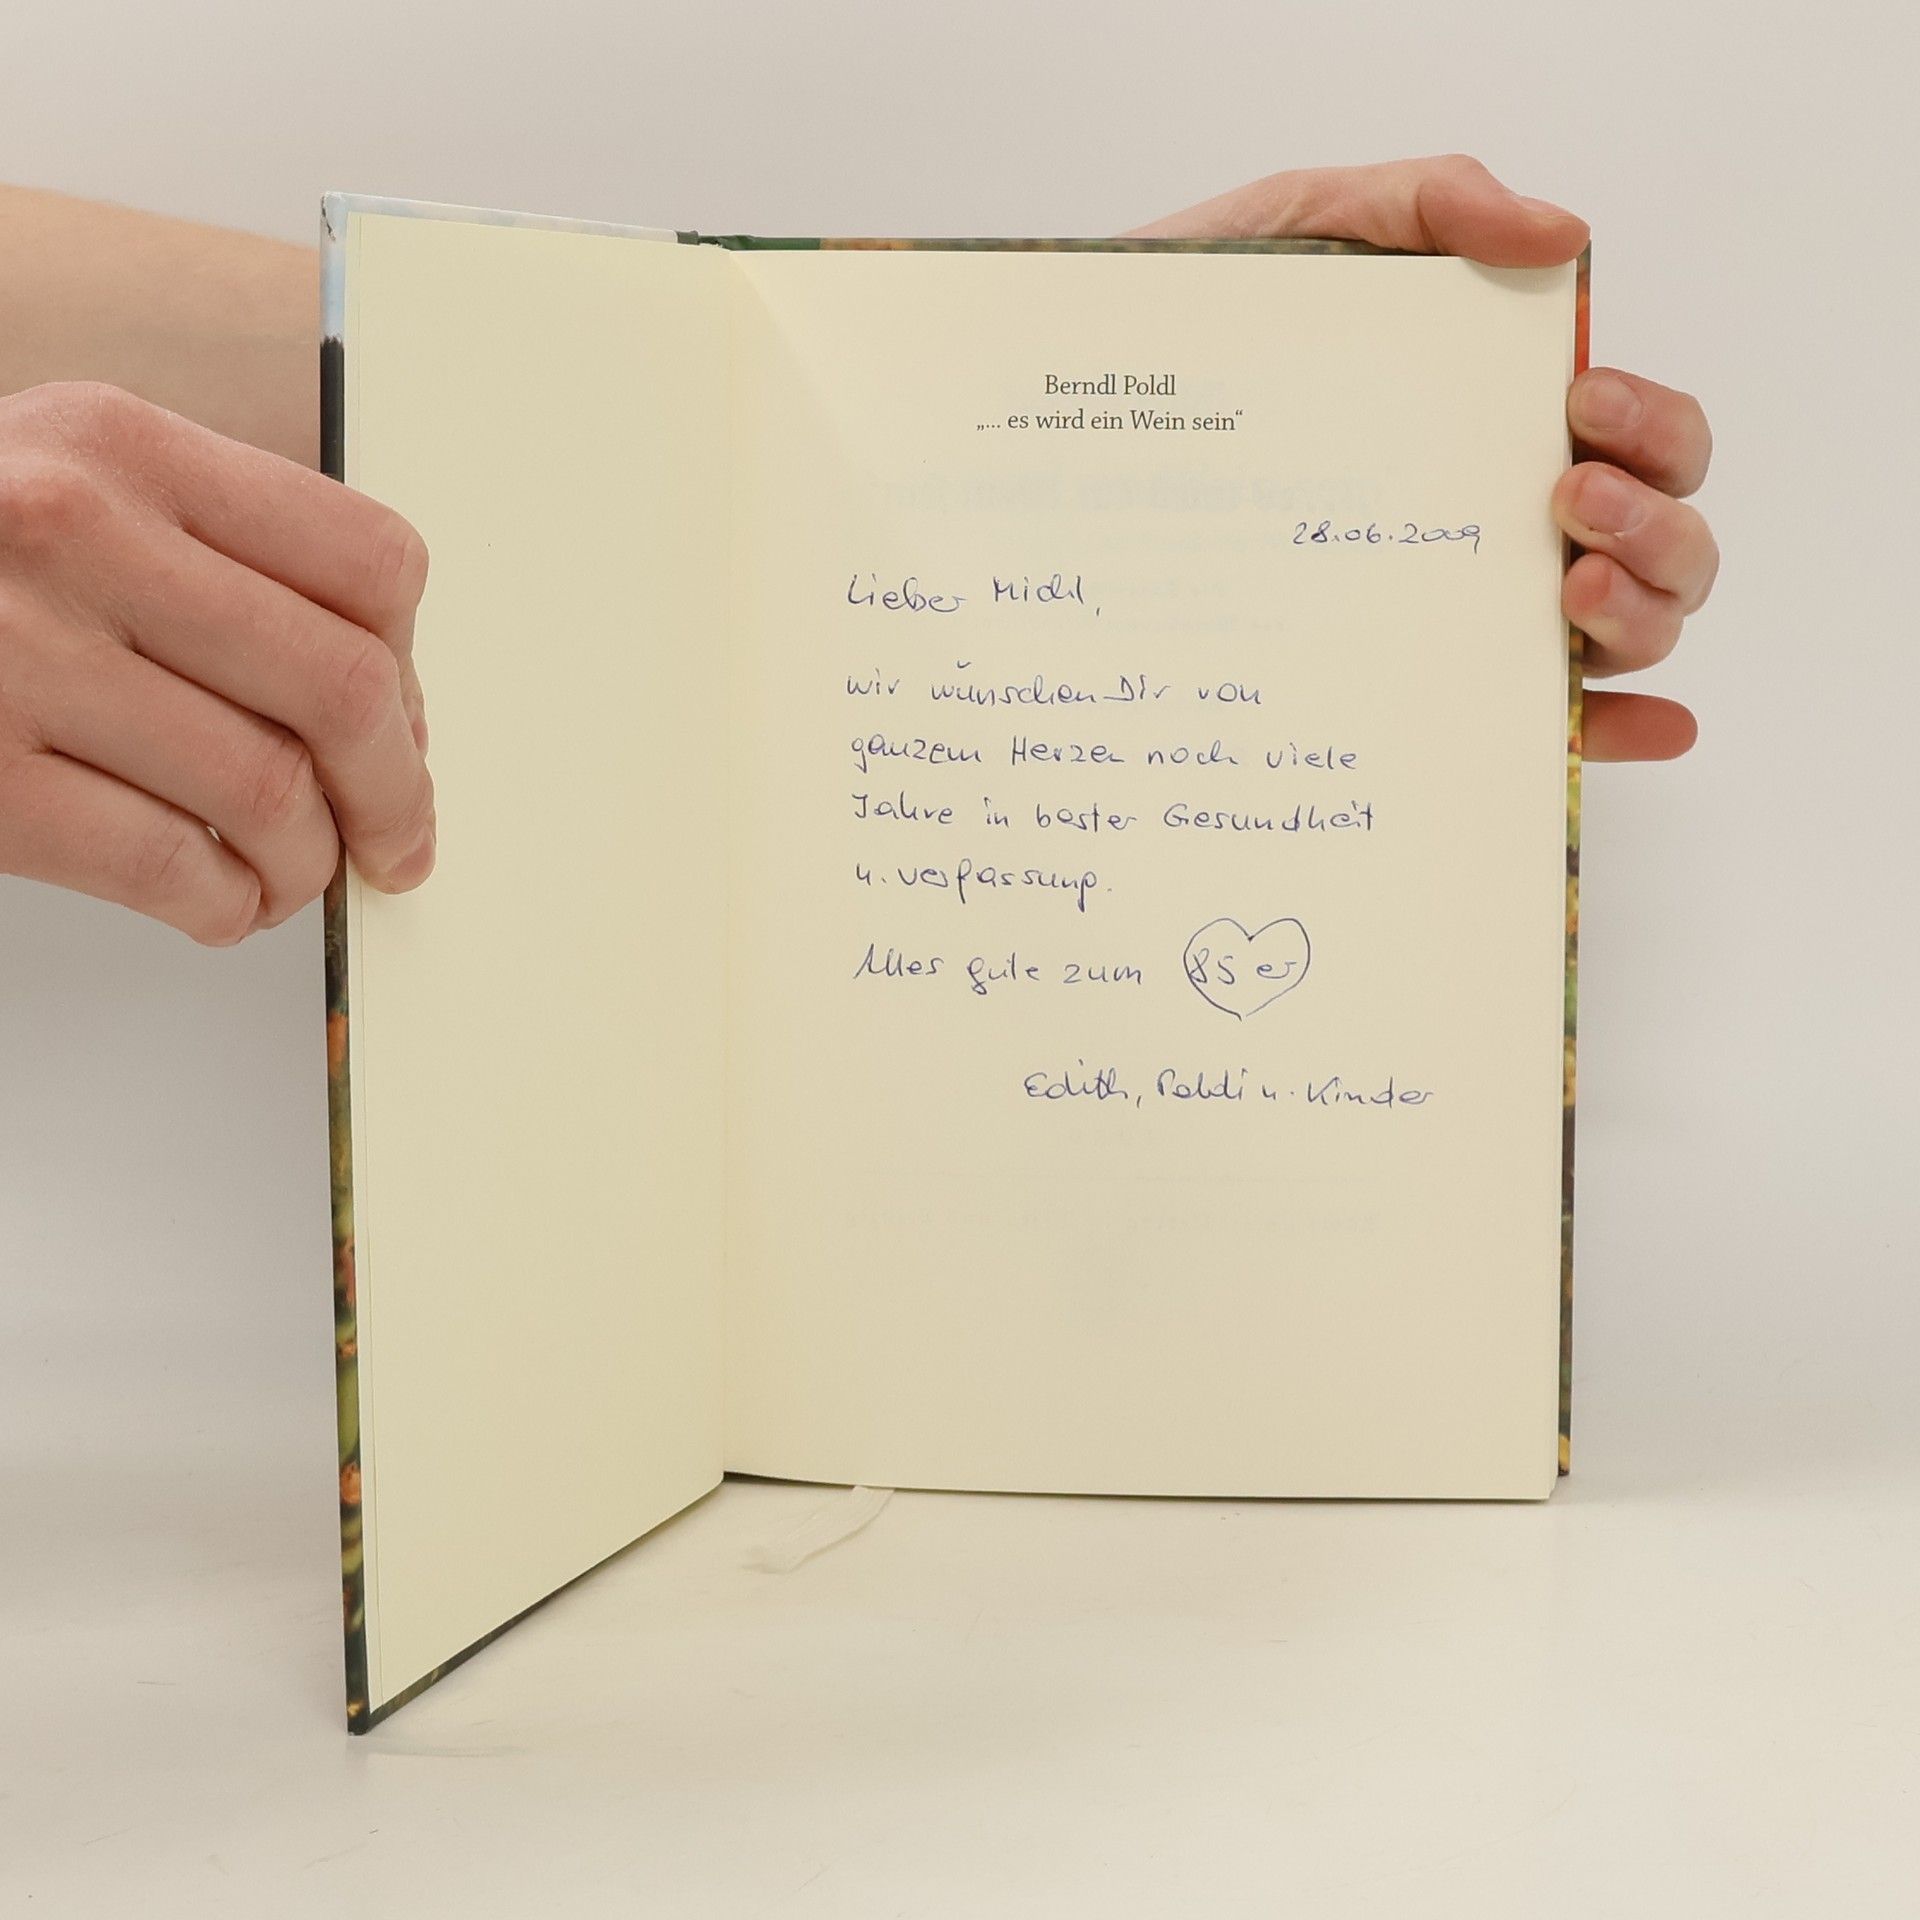 Berndl Poldl
„... es wird ein Wein sein“
28.06.2009
Lieber Michl,
wir wünschen Dir von
ganzem Herzen noch viele
Jahre in bester Gesundheit
u. verfassung.
Alles gute zum 85 er
Edith, Poldi u. Kinder